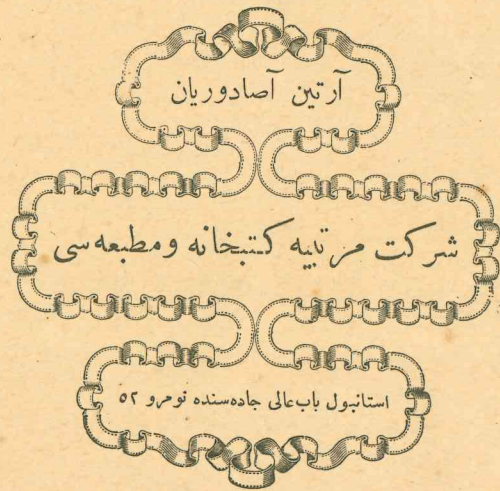 آرتین آصادوریان
شرکت مرتبیه کتبخانه ومطبعه‌سی
استانبول باب‌عالی جاده‌سنده نومرو ٥٢